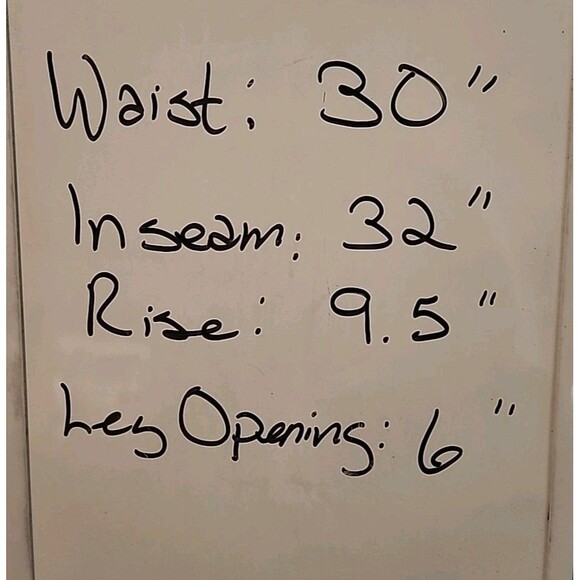 Waist: 30"
Inseam: 32"
Rise: 9.5"
Leg Opening: 6"